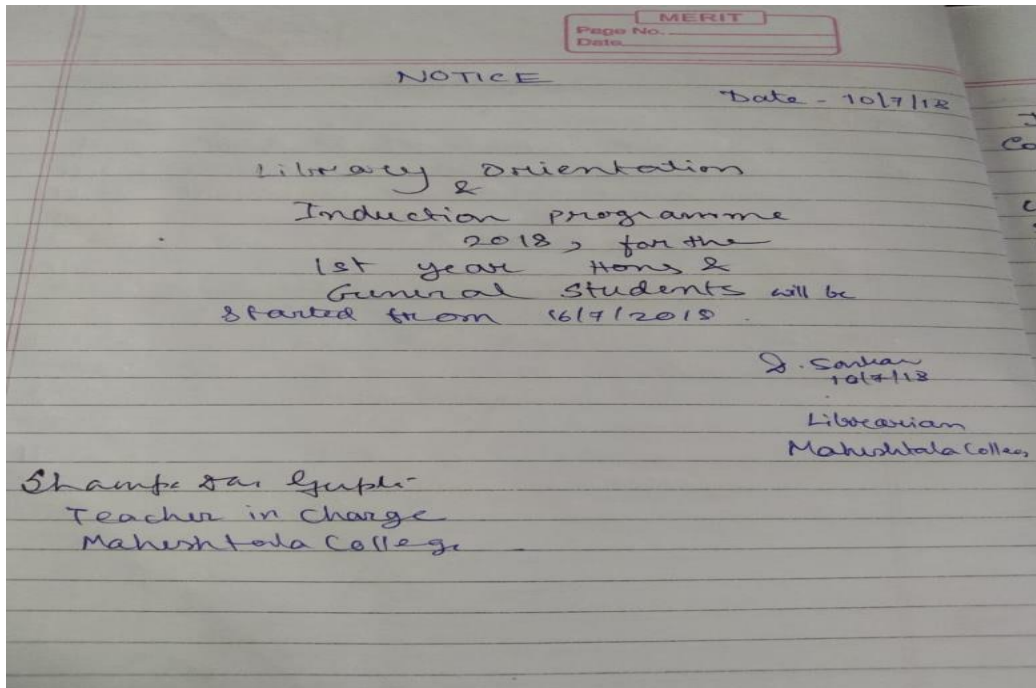 MERIT
Page No.
Date
NOTICE
Date - 10/7/18
Library Orientation
&
Induction programme
2018, for the
1st year Hons &
General Students will be
started from 16/7/2018.
S. Sarkar
10/7/18
Librarian
Maheshtala College
Shampa Das Gupta
Teacher in Charge
Maheshtala College